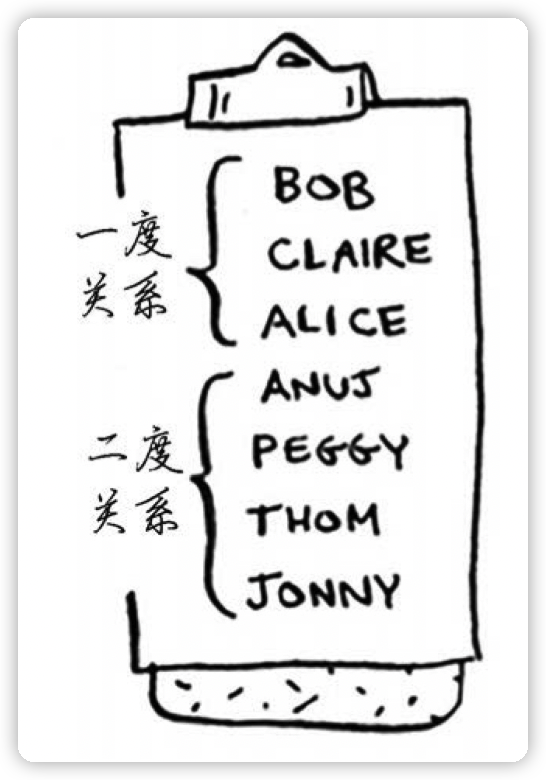 一度
关系
BOB
CLAIRE
ALICE
二度
关系
ANUJ
PEGGY
THOM
JONNY